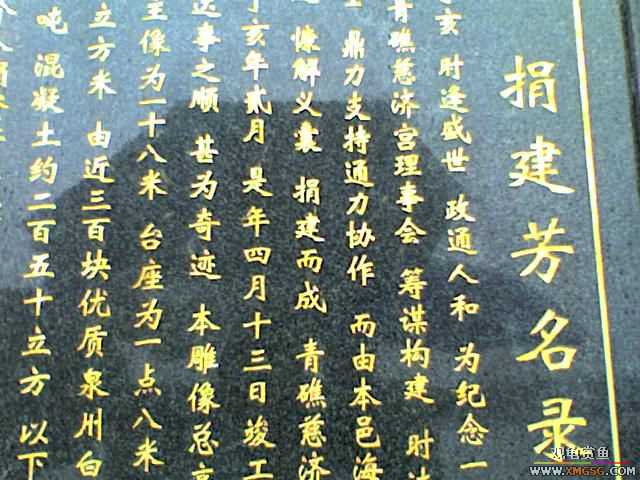 捐建芳名录
亥 时逢盛世 政通人和 为纪念一
青礁慈济宫理事会 筹谋构建 时
鼎力支持通力协作 而由本邑海
慷解义囊 捐建而成 青礁慈济
丁亥年贰月 是年四月十三日竣工
达事之顺 甚为奇迹 本雕像总高
主像为一十八米 台座为一点八米
立方米 由近三百块优质泉州白
吨 混凝土约二百五十立方 以下
观龟赏鱼
WWW.XMGSG.COM